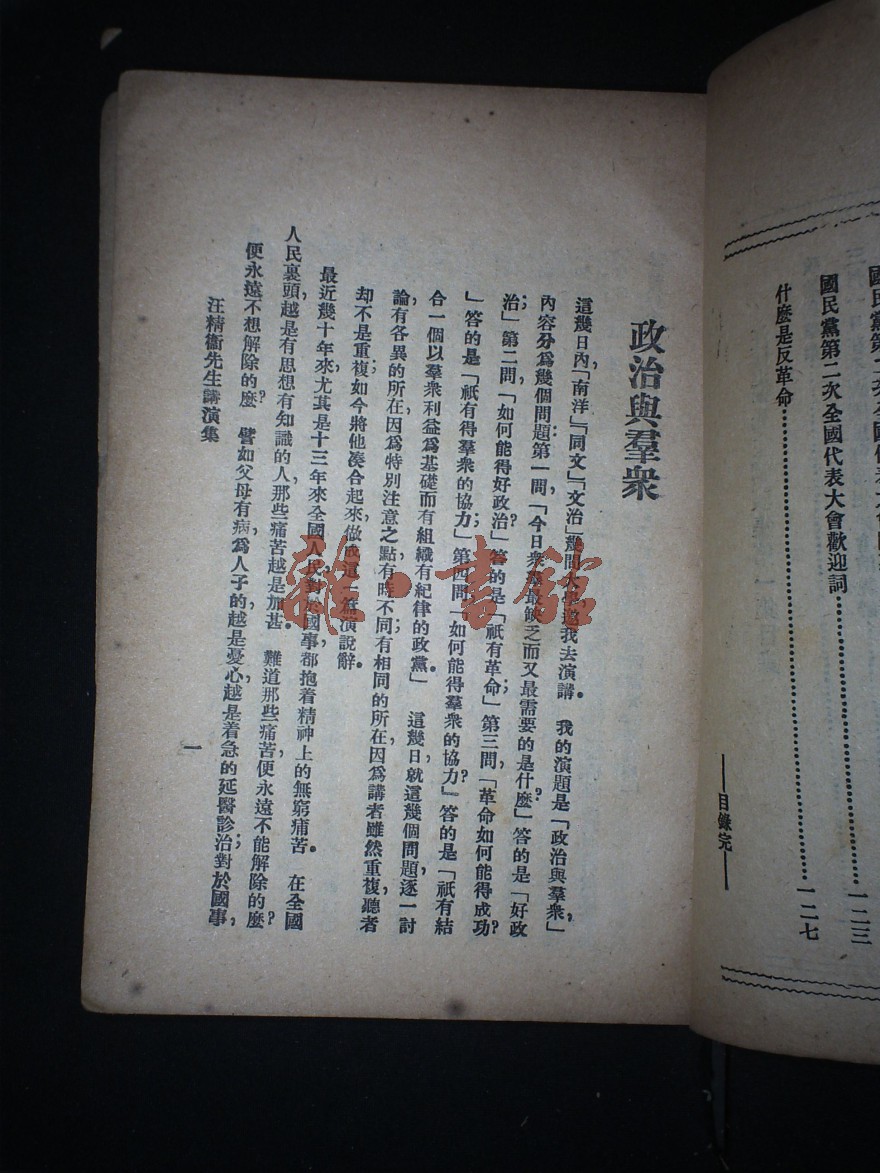 國民黨第二次全國代表大
國民黨第二次全國代表大會歡迎詞……………………一二三
什麼是反革命……………………一二七
——目錄完——
政治與羣衆
這幾日內「南洋」「同文」「文治」幾間大學邀我去演講。我的演題是「政治與羣衆」，
內容分爲幾個問題：第一問，「今日衆羣最缺乏而又最需要的是什麼？」答的是「好政
治」；第二問「如何能得好政治？」答的是「祇有革命」；第三問，「革命如何能得成功？
」答的是「祇有得羣衆的協力」；第四問「如何能得羣衆的協力？」答的是「祇有結
合一個以羣衆利益爲基礎而有組織有紀律的政黨。」這幾日就這幾個問題，逐一討
論有各異的所在，因爲特別注意之點有時不同；有相同的所在，因爲講者雖然重複，聽者
却不是重複；如今將他湊合起來，做成這一篇演說辭。
最近幾十年來，尤其是十三年來全國人民，對於國事都抱着精神上的無窮痛苦。在全國
人民裏頭，越是有思想有知識的人，那些痛苦越是加甚。難道那些痛苦，便永遠不能解除的麼？
便永遠不想解除的麼？譬如父母有病，爲人子的，越是憂心，越是着急的延醫診治；對於國事，
汪精衞先生講演集
一
雜·書館